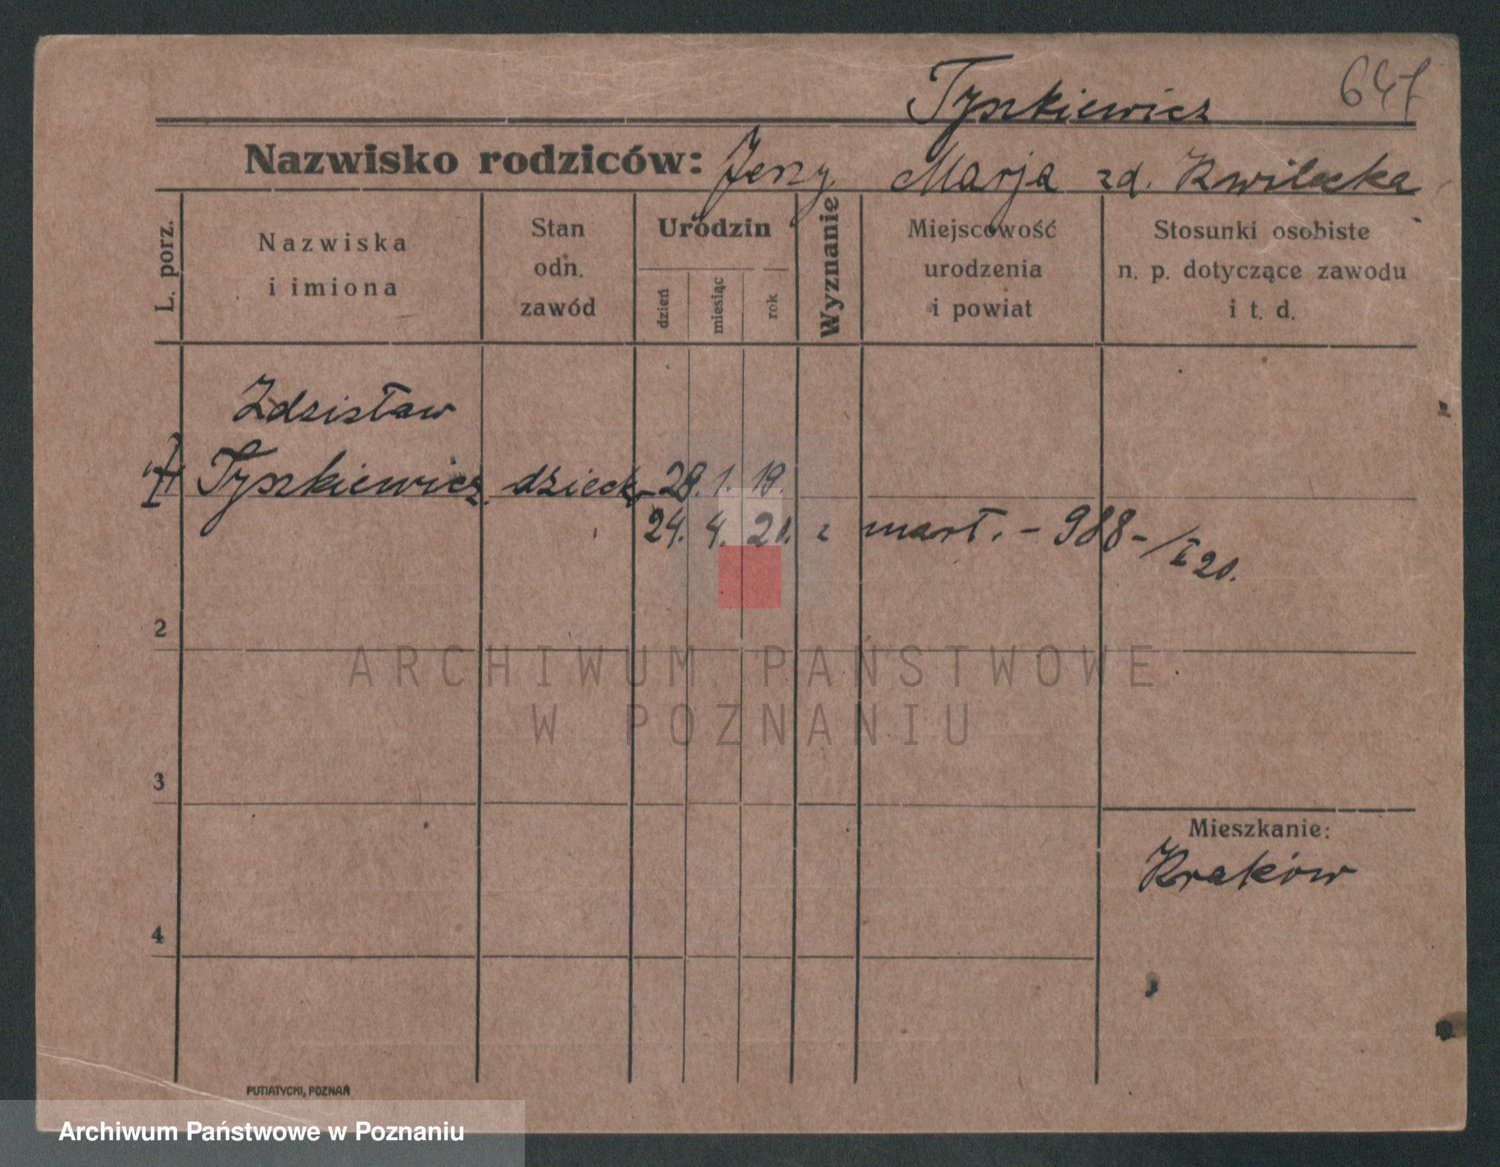 Tyszkiewicz 647
Nazwisko rodziców: Jerzy Marja zd. Kwilecka
L. porz.
Nazwiska
i imiona
Stan
odn.
zawód
Urodzin
dzień
miesiąc
rok
Wyznanie
Miejscowość
urodzenia
i powiat
Stosunki osobiste
n. p. dotyczące zawodu
i t. d.
Zdzisław
Tyszkiewicz dziecko 28. 1. 19.
24. 4. 20. z mart. - 988 - / I 20.
2
3
4
Mieszkanie:
Kraków
PUTIATYCKI, POZNAŃ
ARCHIWUM PAŃSTWOWE
W POZNANIU
Archiwum Państwowe w Poznaniu